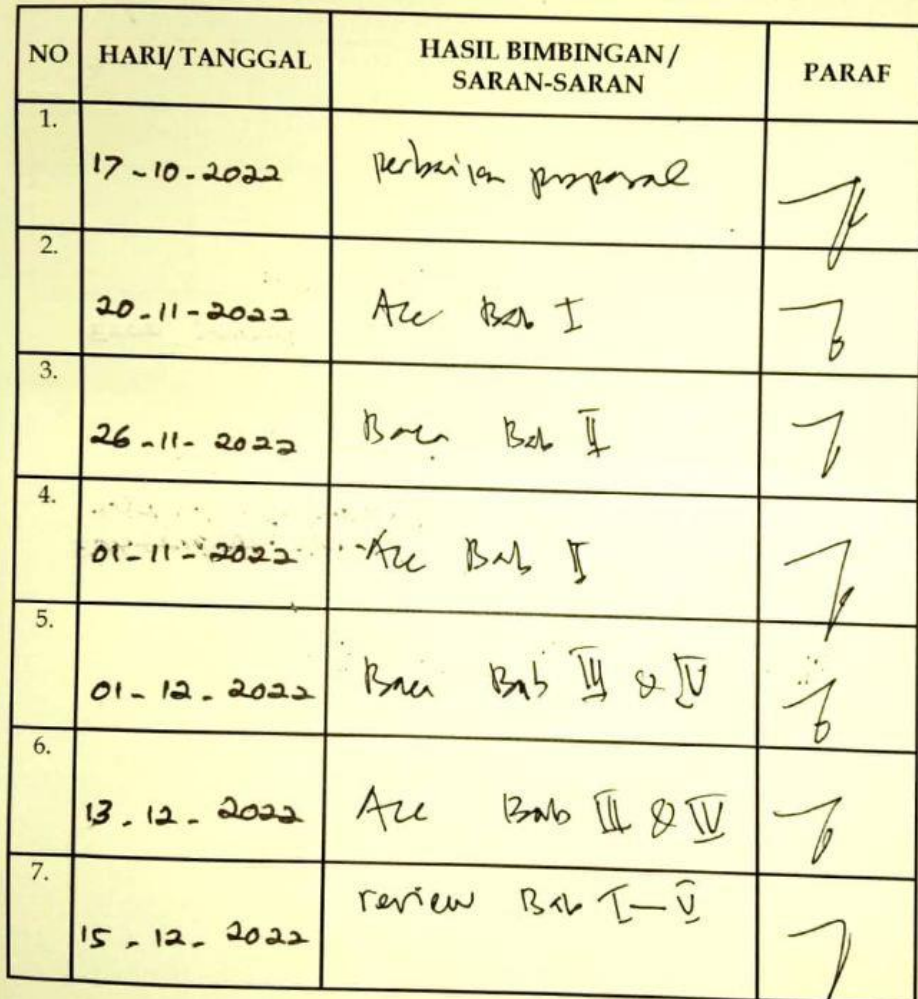 NO HARI/TANGGAL HASIL BIMBINGAN/ PARAF
SARAN-SARAN
1.
17-10-2022 perbaikan proposal
2.
20-11-2022 Acc Bab I
3.
26-11-2022 Baca Bab II
4.
01-11-2022 Acc Bab II
5.
01-12-2022 Baca Bab III & IV
6.
13-12-2022 Acc Bab III & IV
7.
review Bab I-V
15-12-2022